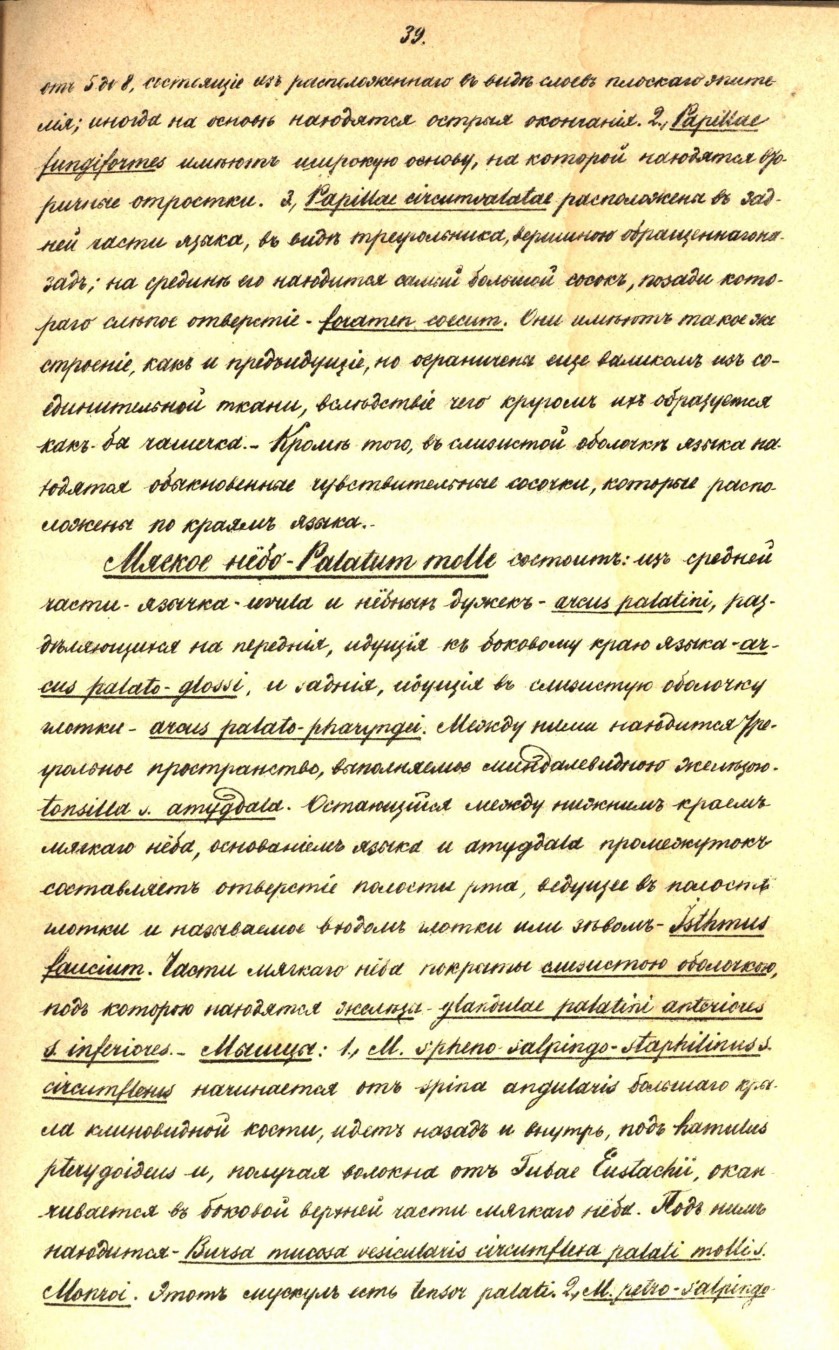 39.
отъ 5 до 8, состоящіе изъ расположеннаго въ видѣ слоевъ плоскаго эпите-
лія; иногда на основѣ находятся острыя окончанія. 2, Papillae
fungiformes имѣютъ широкую основу, на которой находятся вто-
ричные отростки. 3, Papillae circumvalatae расположены въ зад-
ней части языка, въ видѣ треугольника, вершиною обращеннаго на-
задъ; на срединѣ его находится самый большой сосокъ, позади кото-
раго слѣпое отверстіе - foramen coecum. Они имѣютъ такое же
строеніе, какъ и предъидущіе, но ограничены еще валикомъ изъ со-
единительной ткани, вслѣдствіе чего кругомъ ихъ образуется
какъ-бы чашечка.- Кромѣ того, въ слизистой оболочкѣ языка на-
ходятся обыкновенные чувствительные сосочки, которые распо-
ложены по краямъ языка.-
Мягкое нёбо - Palatum molle состоитъ: изъ средней
части - язычка - uvula и нёбныхъ дужекъ - arcus palatini, раз-
дѣляющихся на переднія, идущія къ боковому краю языка - ar-
cus palato-glossi, и заднія, идущія въ слизистую оболочку
глотки - arcus palato-pharyngei. Между ними находится тре-
угольное пространство, выполняемое миндалевидною железою-
tonsilla s. amygdala. Остающійся между нижнимъ краемъ
мягкаго нёба, основаніемъ языка и amygdala промежутокъ
составляетъ отверстіе полости рта, ведущее въ полость
глотки и называемое входомъ глотки или зѣвомъ - Isthmus
faucium. Части мягкаго нёба покрыты слизистою оболочкою,
подъ которою находятся железы - glandulae palatini anteriores
s. inferiores.- Мышцы: 1, M. spheno-salpingo-staphilinus s.
circumflexus начинается отъ spina angularis большаго кры-
ла клиновидной кости, идетъ назадъ и внутрь, подъ hamulus
pterygoideus и, получая волокна отъ Tubae Eustachii, окан-
чивается въ боковой верхней части мягкаго нёба. Подъ нимъ
находится - Bursa mucosa vesicularis circumflexa palati mollis.
Monroi. Этотъ мускулъ есть tensor palati. 2, M. petro-salpingo-